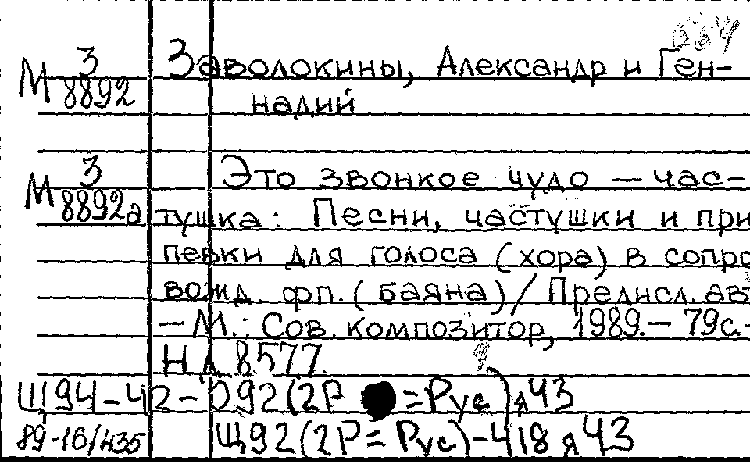 664
З Заволокины, Александр и Ген-
М 8892 надий
З Это звонкое чудо — час-
М 8892а тушка: Песни, частушки и при
певки для голоса (хора) в сопро
вожд. фп. (баяна) / Предисл. авт
— М.: Сов. композитор, 1989. — 79с.-
Н Д 8577.
Щ94-42- 092(2Р =Рус)я43
89-16/435 Щ92(2Р=Рус)-418я43